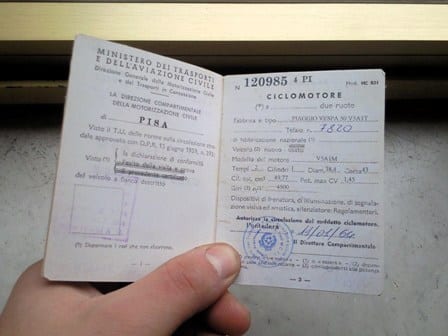 MINISTERO DEI TRASPORTI
E DELL'AVIAZIONE CIVILE
Direzione Generale della Motorizzazione Civile
e dei Trasporti in Concessione
LA DIREZIONE COMPARTIMENTALE
DELLA MOTORIZZAZIONE CIVILE
DI
PISA
Visto il T.U. delle norme sulla circolazione stra-
dale approvato con D.P.R. 15 giugno 1959, n. 393;
Visto (*)
la dichiarazione di conformità
l'esito della visita e prova
del veicolo a fianco descritto
(*) Depennare i dati che non ricorrono.
— 1 —
N 120985 4 PI
Mod. MC 821
CICLOMOTORE
(*) a due ruote
Fabbrica e tipo PIAGGIO VESPA 50 V5A1T
Telaio n. 7820
Omologazione nazionale (*)
Veicolo (*) nuovo
Modello del motore V5A1M
Tempi 2 Cilindri 1 Diam. 38,4 Corsa 43
Cil. tot. cm³ 49,77 Pot. max CV 1,45
Giri (*) 4500
Dispositivi di frenatura, di illuminazione, di segnala-
zione visiva ed acustica, silenziatore: Regolamentari.
Autorizza la circolazione del suddetto ciclomotore.
Pontedera
Il Direttore Compartimentale
— 3 —